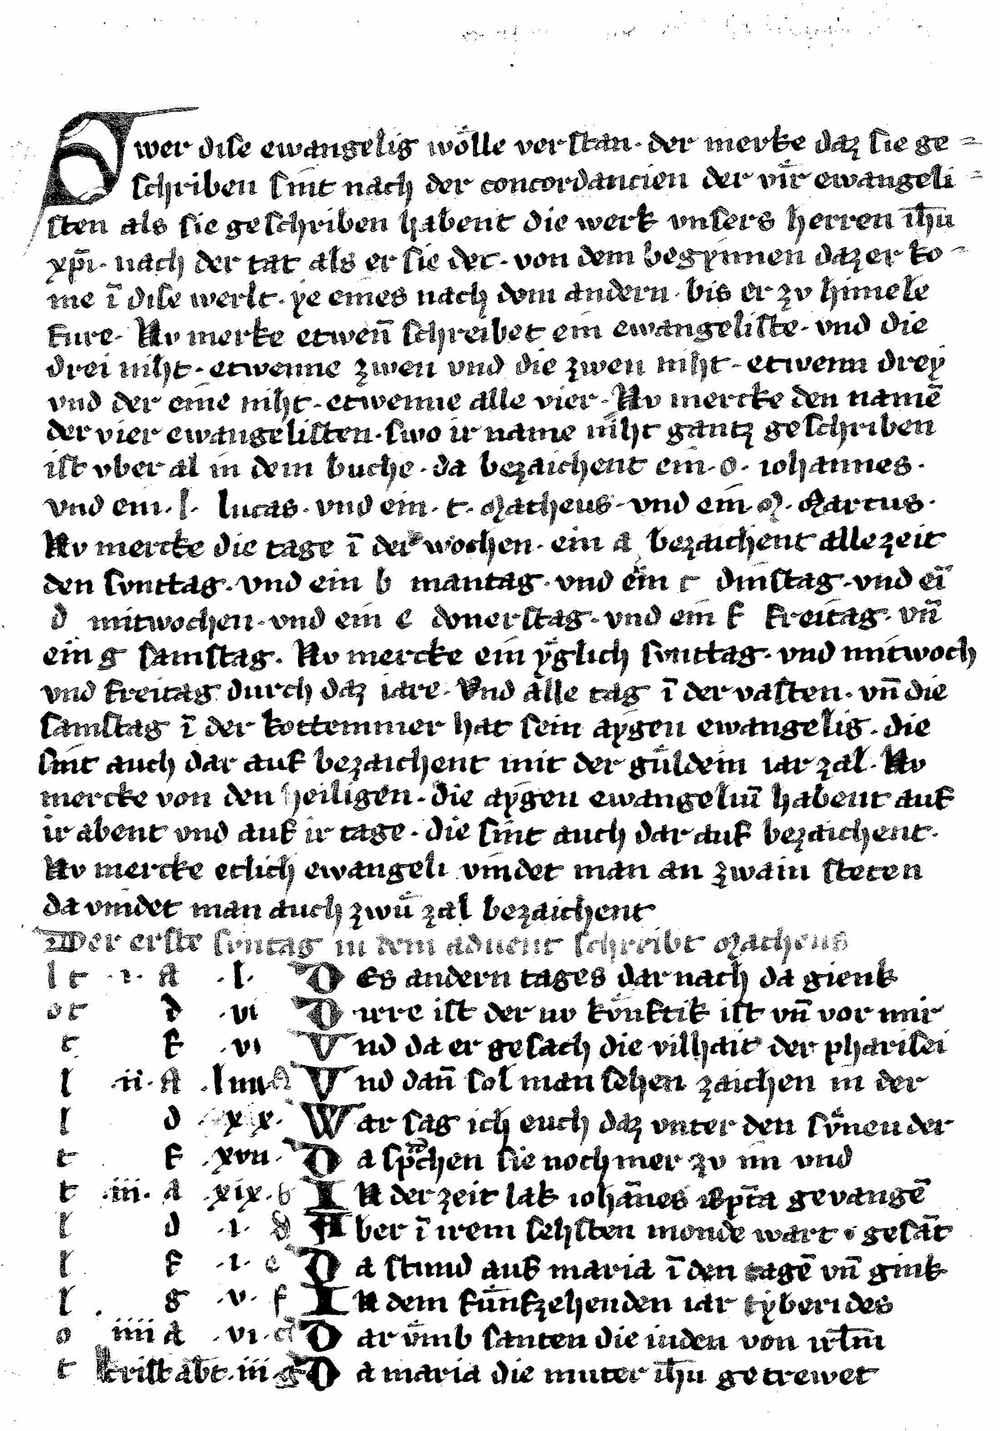 Swer dise ewangelig wölle verstan · der merke daz sie ge=
schriben sint nach der concordancien der vir ewangeli=
sten als sie geschriben habent die werk vnsers herren ih̄u
xp̄i · nach der tat als er sie det · von dem begynnen daz er ko=
me ī dise werlt · ye eines nach dem andern · bis er zv himele
fure · Nv merke etwen̄ schreibet ein ewangeliste · vnd die
drei niht · etwenne zwen vnd die zwen niht · etwenn drey
vnd der eine niht · etwenne alle vier · Nv mercke den namē
der vier ewangelisten · swo ir name niht gantz geschriben
ist vber al in dem buche · da bezaichent ein · o · iohannes ·
vnd ein · l · lucas · vnd ein · t · Matheus · vnd ein · M · Marcus ·
Nv mercke die tage ī der wochen · ein a bezaichent alle zeit
den svnttag · vnd ein b mantag · vnd ein c dinstag · vnd eī
d mitwochen · vnd ein e donerstag · vnd ein f freitag · vn̄
ein g samstag · Nv mercke ein yglich svnttag · vnd mitwoch
vnd freitag durch daz iare · Vnd alle tag ī der vasten · vn̄ die
samstag ī der kottemmer hat sein aygen ewangelig · die
sint auch dar auf bezaichent mit der guldein iar zal · Nv
mercke von den heiligen · die aygen ewangeliū habent auf
ir abent vnd auf ir tage · die sint auch dar auf bezaichent ·
Nv mercke etlich ewangeli vindet man an zwain steten
da vindet man auch zwu zal bezaichent
Der erste suntag in dem aduent schreibt Matheus
l t · i · A · l · DEs andern tages dar nach da gienk
o t d · vi Dirre ist der nv kunftik ist vn̄ vor mir
t f · vi Vnd da er gesach die vilhait der pharisei
l · ii · A Vnd dan̄ sol man sehen zaichen in der
l d · xx · War sag ich euch daz vnter den synen der
t f · xvii · Da sprachen sie noch mer zv im vnd
t · iii · a · xix · b IN der zeit lak iohānes gevangē
l d · i · d Aber ī irem sehsten monde wart gesāt
l f · i · e Da stund auf maria ī den tagē vn̄ gink
l g · v · f IN dem funfzehenden iar tyberides
o iiii a · vi · Dar vmb santen die iuden von irl̄m
t krist abt · iii · g Da maria die muter ih̄u getrewet